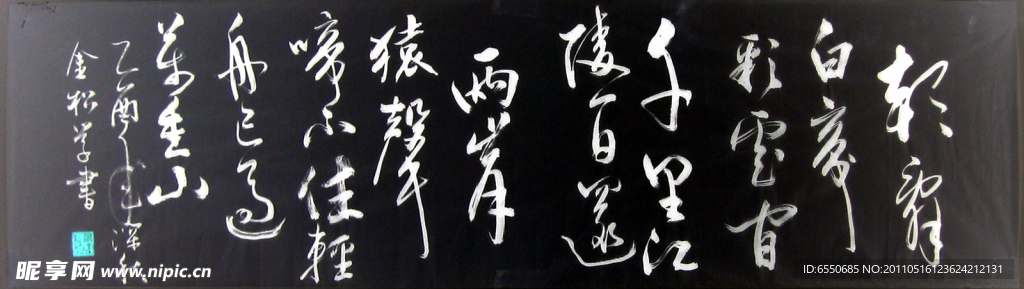 朝辭
白帝
彩雲間
千里江
陵一日還
兩岸
猿聲
啼不住輕
舟已過
萬重山
乙酉年深秋
金松学書
昵享网 www.nipic.cn
ID:6550685 NO:20110516123624212131